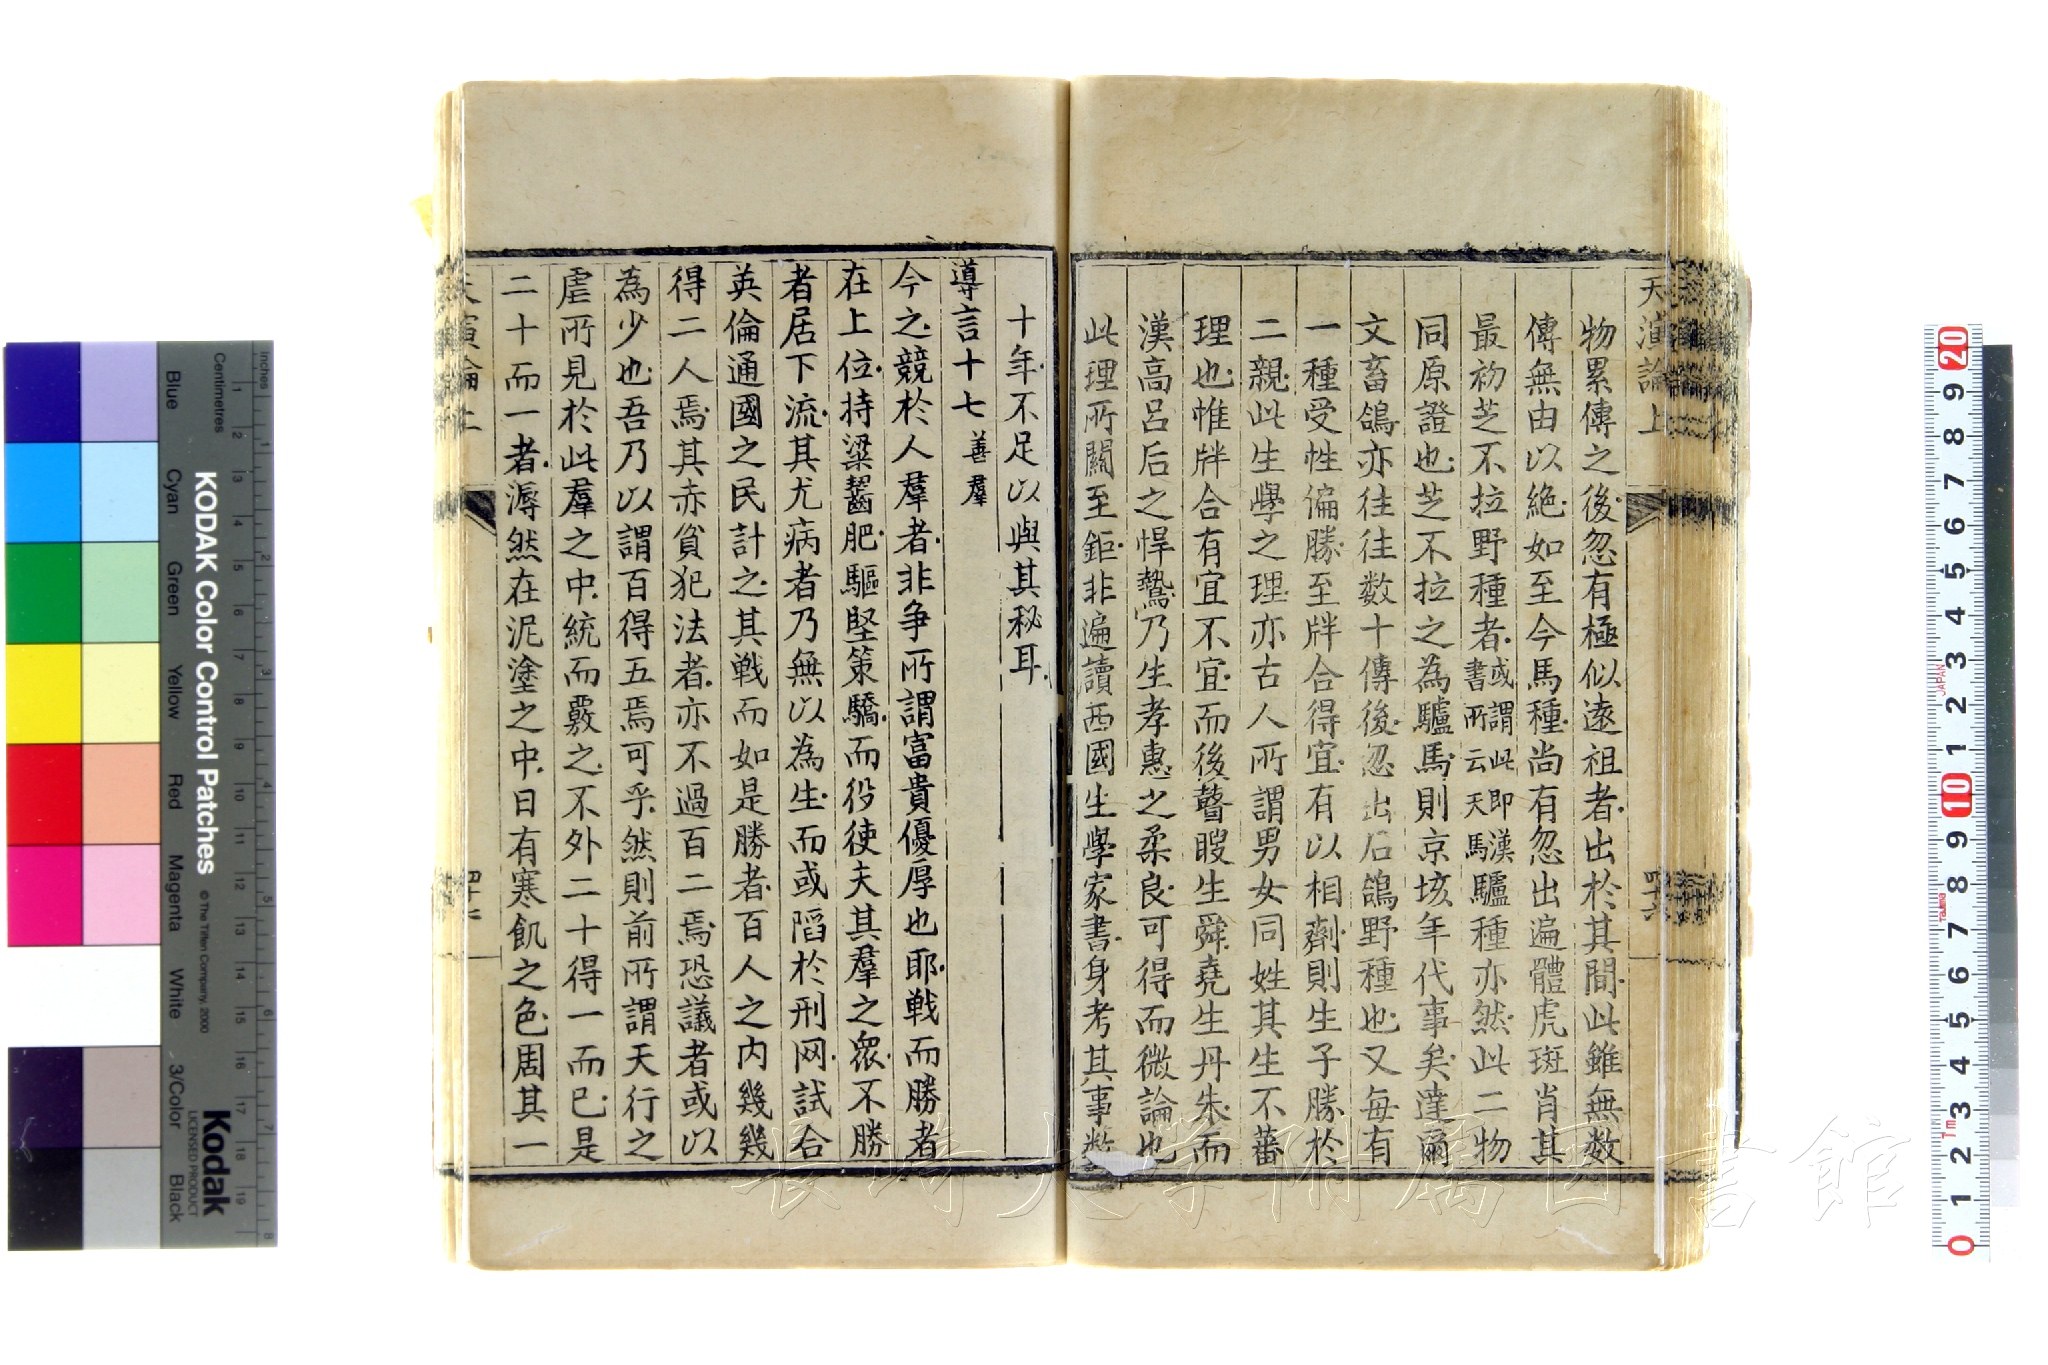 天演論上
物累傳之後忽有極似遠祖者出於其間此雖無数
傳無由以絕如至今馬種尚有忽出遍體虎斑肖其
最初芝不拉野種者或謂此即漢書所云天馬驢種亦然此二物
同原證也芝不拉之為驢馬則京垓年代事矣達爾
文畜鴿亦往往数十傳後忽出石鴿野種也又每有
一種受性偏勝至牉合得宜有以相劑則生子勝於
二親此生學之理亦古人所謂男女同姓其生不蕃
理也惟牉合有宜不宜而後瞽瞍生舜堯生丹朱而
漢高呂后之悍鷙乃生孝惠之柔良可得而微論也
此理所關至鉅非遍讀西國生學家書身考其事数
四十六
十年不足以與其秘耳
導言十七 善羣
今之競於人羣者非爭所謂富貴優厚也耶戰而勝者
在上位持粱齧肥驅堅策驕而役使夫其羣之衆不勝
者居下流其尤病者乃無以為生而或陷於刑网試合
英倫通國之民計之其戰而如是勝者百人之内幾幾
得二人焉其赤貧犯法者亦不過百二焉恐議者或以
為少也吾乃以謂百得五焉可乎然則前所謂天行之
虐所見於此羣之中統而覈之不外二十得一而已是
二十而一者溽然在泥塗之中日有寒飢之色周其一
天演論上
KODAK Color Control Patches
© The Tiffen Company, 2000
Kodak
LICENSED PRODUCT
Inches
Centimetres
Blue
Cyan
Green
Yellow
Red
Magenta
White
3/Color
Black
JAPAN
Tajima
長崎大学附属図書館